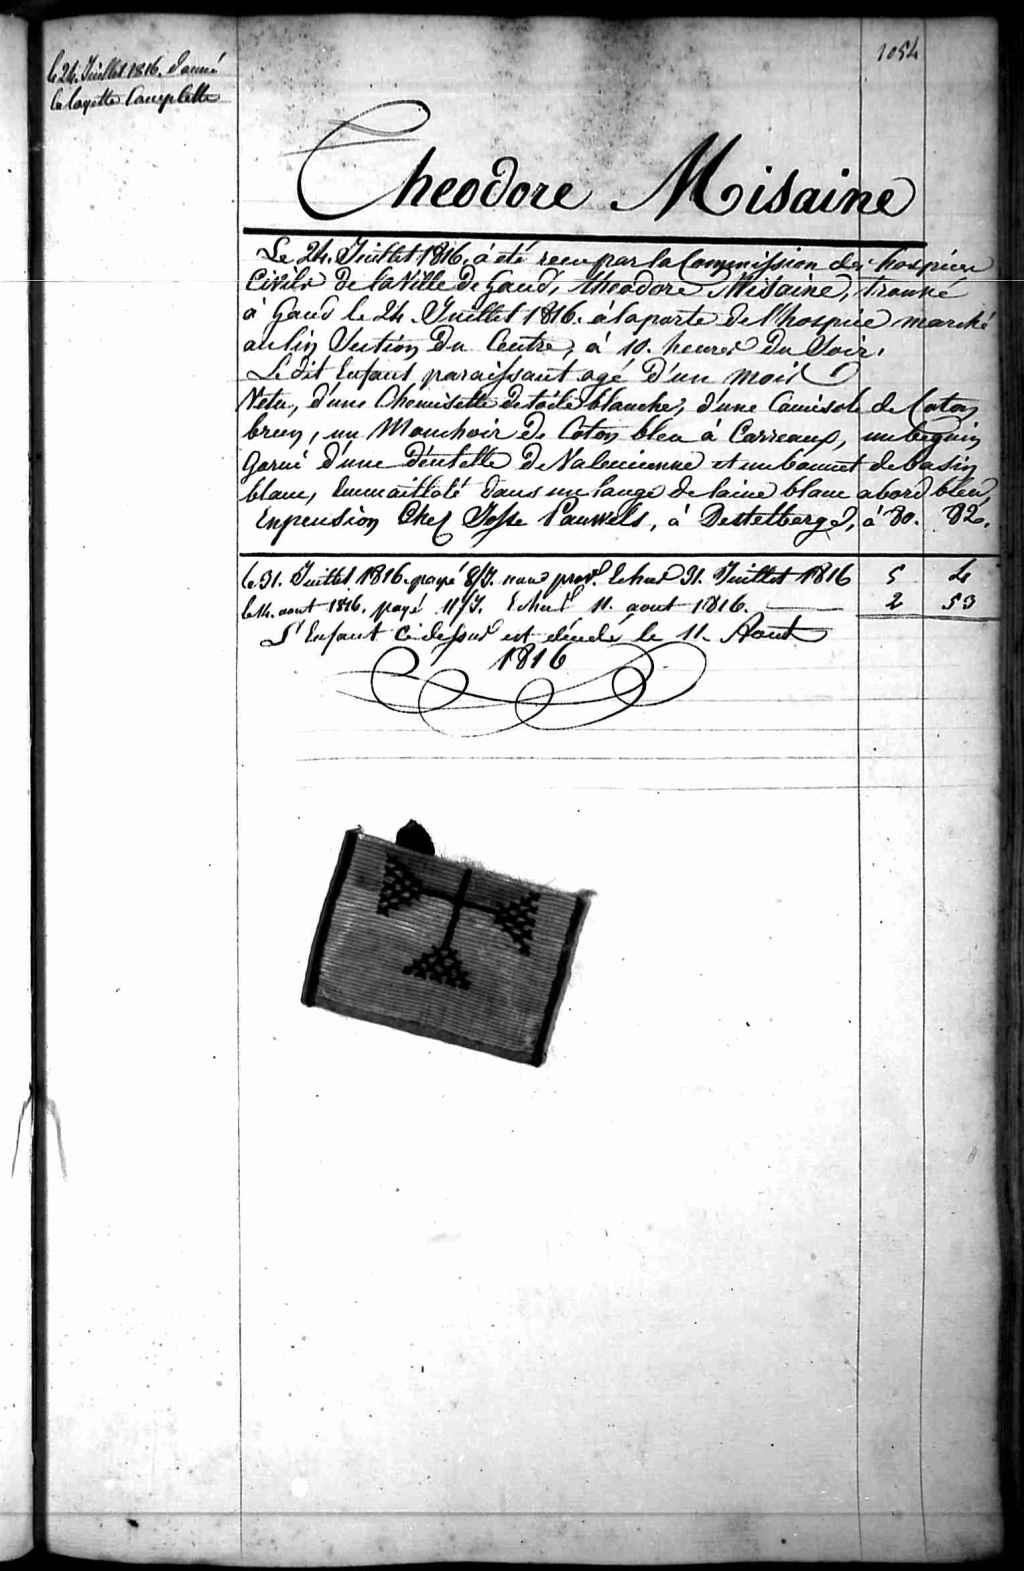 1054
le 24. Juillet 1816. donné
la layette Complette
Theodore Misaine
Le 24. Juillet 1816, a été recu par la Commission des hospices
Civils De la Ville De Gand, theodore Misaine, trouvé
à Gand le 24. Juillet 1816. à la porte De l'hospice marché
au lin Section Du Centre, à 10. heures Du Soir,
Le dit Enfant paraissant agé d'un mois
Vetu, d'une Chemisette De toile blanche, d'une Camisole de Coton
brun, un Mouchoir De Coton bleu à Carreaux, un beguin
Garni d'une Dentelle De Valencienne et un bonnet de basin
blanc, Emmailloté dans un lange de laine blanc a bord bleu,
En pension Chez Josse Pauwels, à Destelberge, à 80. 82.
le 31. Juillet 1816. payé 8/J. Echus 31. Juillet 1816 5 4
le 14. aout 1816. payé 11/J. Echus 11. aout 1816. 2 53
L'Enfant Ci dessus est décédé le 11. Aout
1816